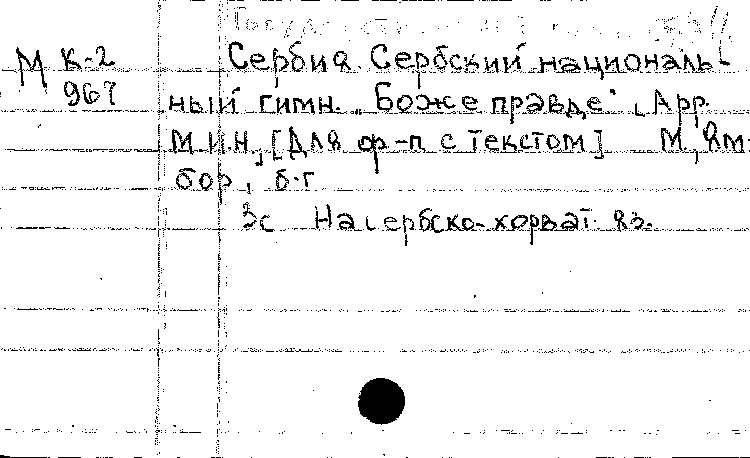 М К-2 Сербия. Сербский националь-
967 ный гимн. „Боже правде“. Арр.
М.И.Н. [Для ф-п с текстом] М, Ям-
бор, б.г
3с На сербско-хорват. яз.